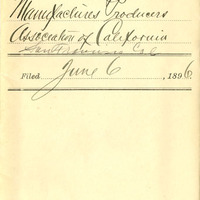 Manufactures Producers
Association of California
San Francisco Cal
Filed June 6 , 1896